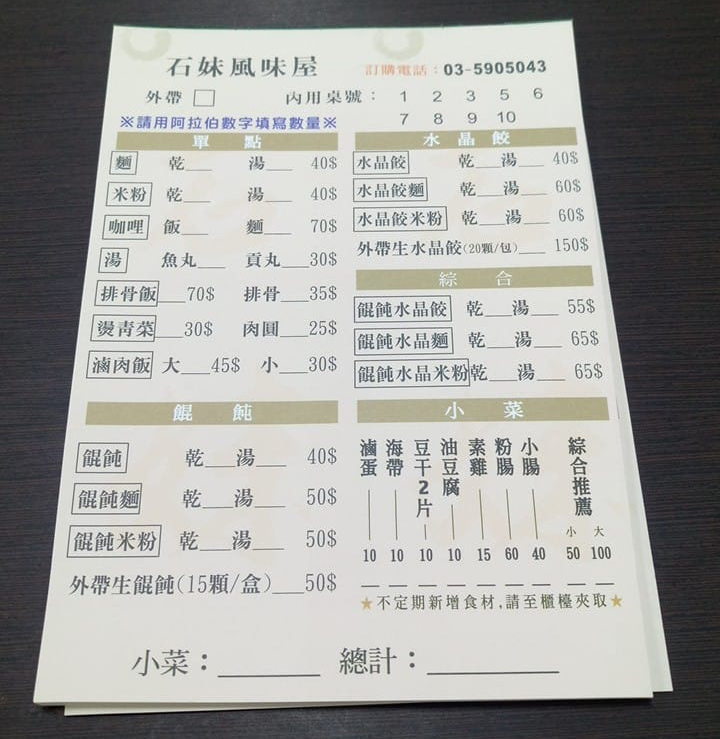 石妹風味屋 訂購電話：03-5905043
外帶 □ 內用桌號： 1 2 3 5 6
7 8 9 10
※請用阿拉伯數字填寫數量※
單 點
麵 乾___ 湯___ 40$
米粉 乾___ 湯___ 40$
咖哩 飯___ 麵___ 70$
湯 魚丸___ 貢丸___30$
排骨飯___70$ 排骨___35$
燙青菜___30$ 肉圓___25$
滷肉飯 大___45$ 小___30$
餛 飩
餛飩 乾___湯___ 40$
餛飩麵 乾___湯___ 50$
餛飩米粉 乾___湯___ 50$
外帶生餛飩(15顆/盒)___50$
水 晶 餃
水晶餃 乾___湯___ 40$
水晶餃麵 乾___湯___ 60$
水晶餃米粉 乾___湯___ 60$
外帶生水晶餃(20顆/包)___ 150$
綜 合
餛飩水晶餃 乾___湯___ 55$
餛飩水晶麵 乾___湯___ 65$
餛飩水晶米粉乾___湯___ 65$
小 菜
滷蛋 10
海帶 10
豆干2片 10
油豆腐 10
素雞 15
粉腸 60
小腸 40
綜合推薦
小 大
50 100
★不定期新增食材,請至櫃檯夾取★
小菜：______ 總計：________